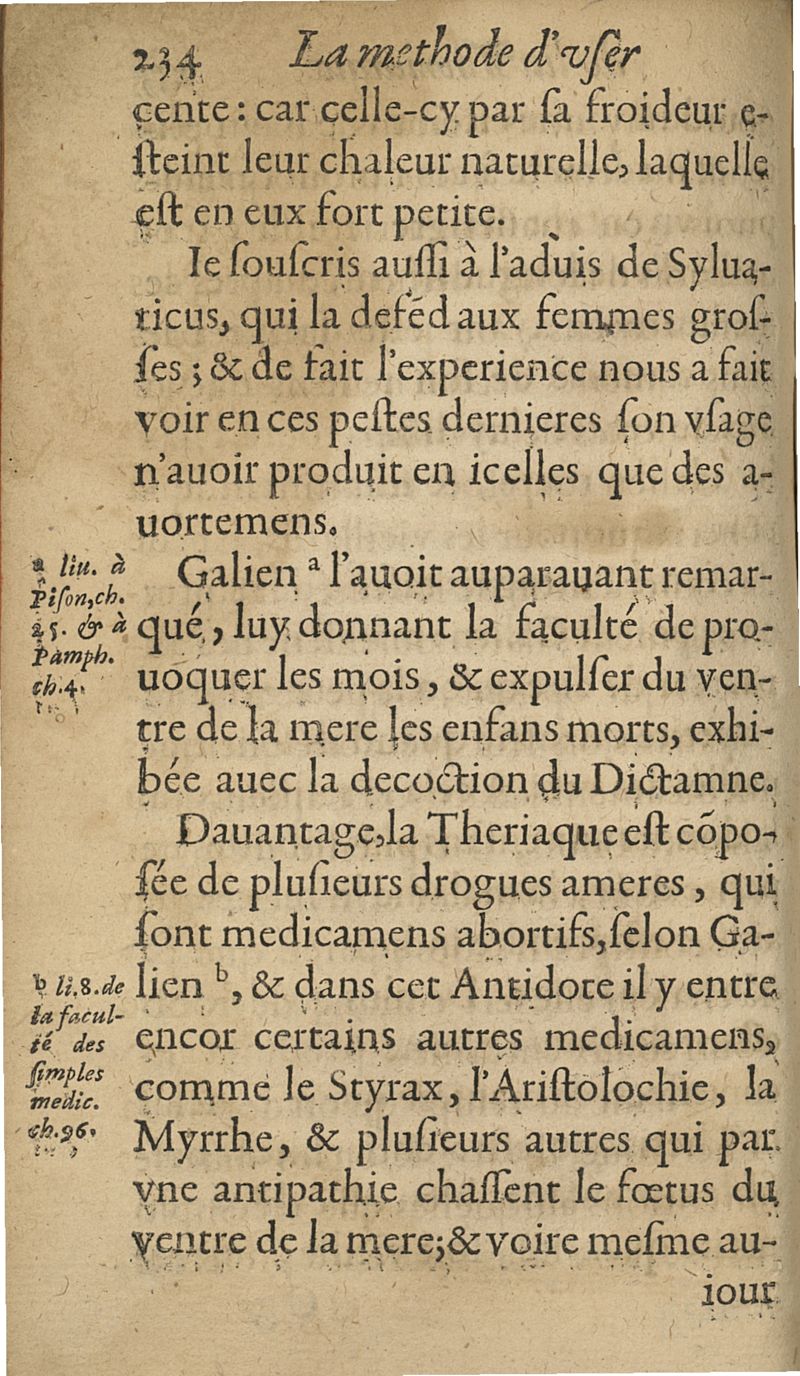 234 La methode d'vſer
cente : car celle-cy par ſa froideur e-
ſteint leur chaleur naturelle, laquelle
eſt en eux fort petite.
Ie ſouſcris auſſi à l'aduis de Sylua-
ticus, qui la defẽd aux femmes groſ-
ſes ; & de fait l'experience nous a fait
voir en ces peſtes dernieres ſon vſage
n'auoir produit en icelles que des a-
uortemens.
Galien ª l'auoit auparauant remar-
qué, luy donnant la faculté de pro-
uoquer les mois, & expulſer du ven-
tre de la mere les enfans morts, exhi-
bée auec la decoction du Dictamne.
Dauantage, la Theriaque eſt cõpo-
ſée de pluſieurs drogues ameres, qui
ſont medicamens abortifs, ſelon Ga-
lien ᵇ, & dans cet Antidote il y entre
encor certains autres medicamens,
comme le Styrax, l'Ariſtolochie, la
Myrrhe, & pluſieurs autres qui par
vne antipathie chaſſent le fœtus du
ventre de la mere; & voire meſme au-
iour
a liu. à
Piſon, ch.
15. & à
Pamph.
ch. 4.
b li. 8. de
la facul-
té des
ſimples
medic.
ch. 96.